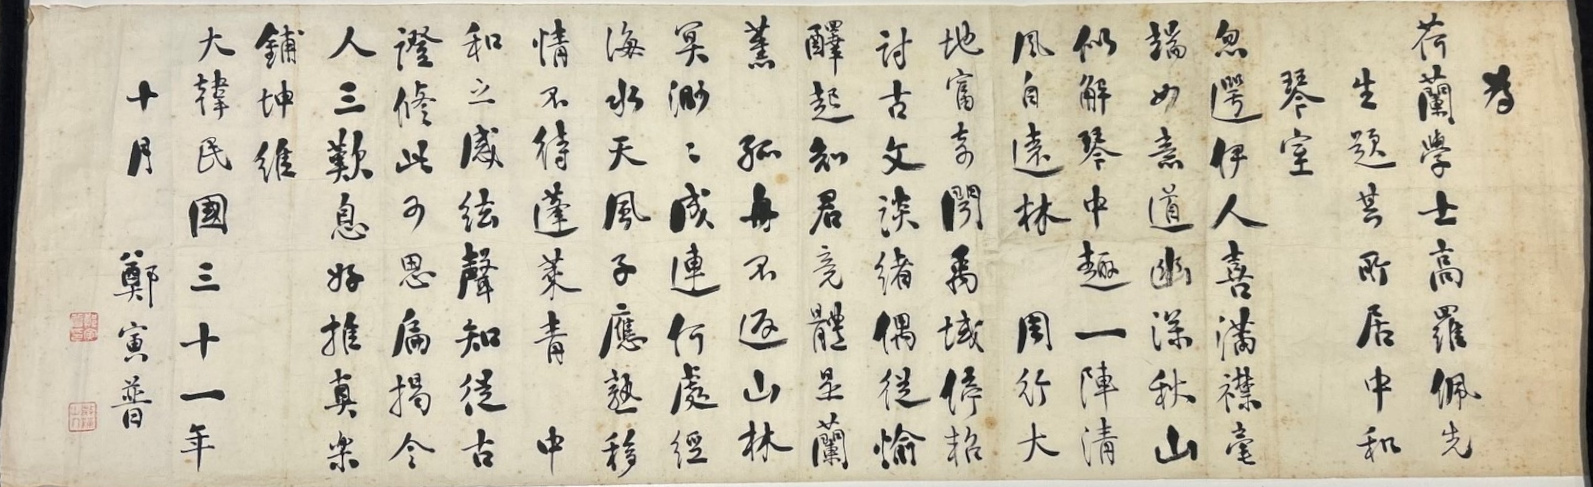 為
荷蘭學士高羅佩先
生題其所居中和
琴室
忽遌伊人喜滿襟毫
端如意道幽深秋山
似解琴中趣一陣清
風自遠林 周行大
地富奇聞禹域停軺
討古文談緒偶從愉
醳起知君竟體是蘭
薰 孤舟不返山林
冥渺渺成連何處經
海水天風子應熟移
情不待蓬萊青 中
和之感絃聲知從古
證修此可思扁揭今
人三歎息好推真樂
鋪坤維
大韓民國三十一年
十月 鄭寅普